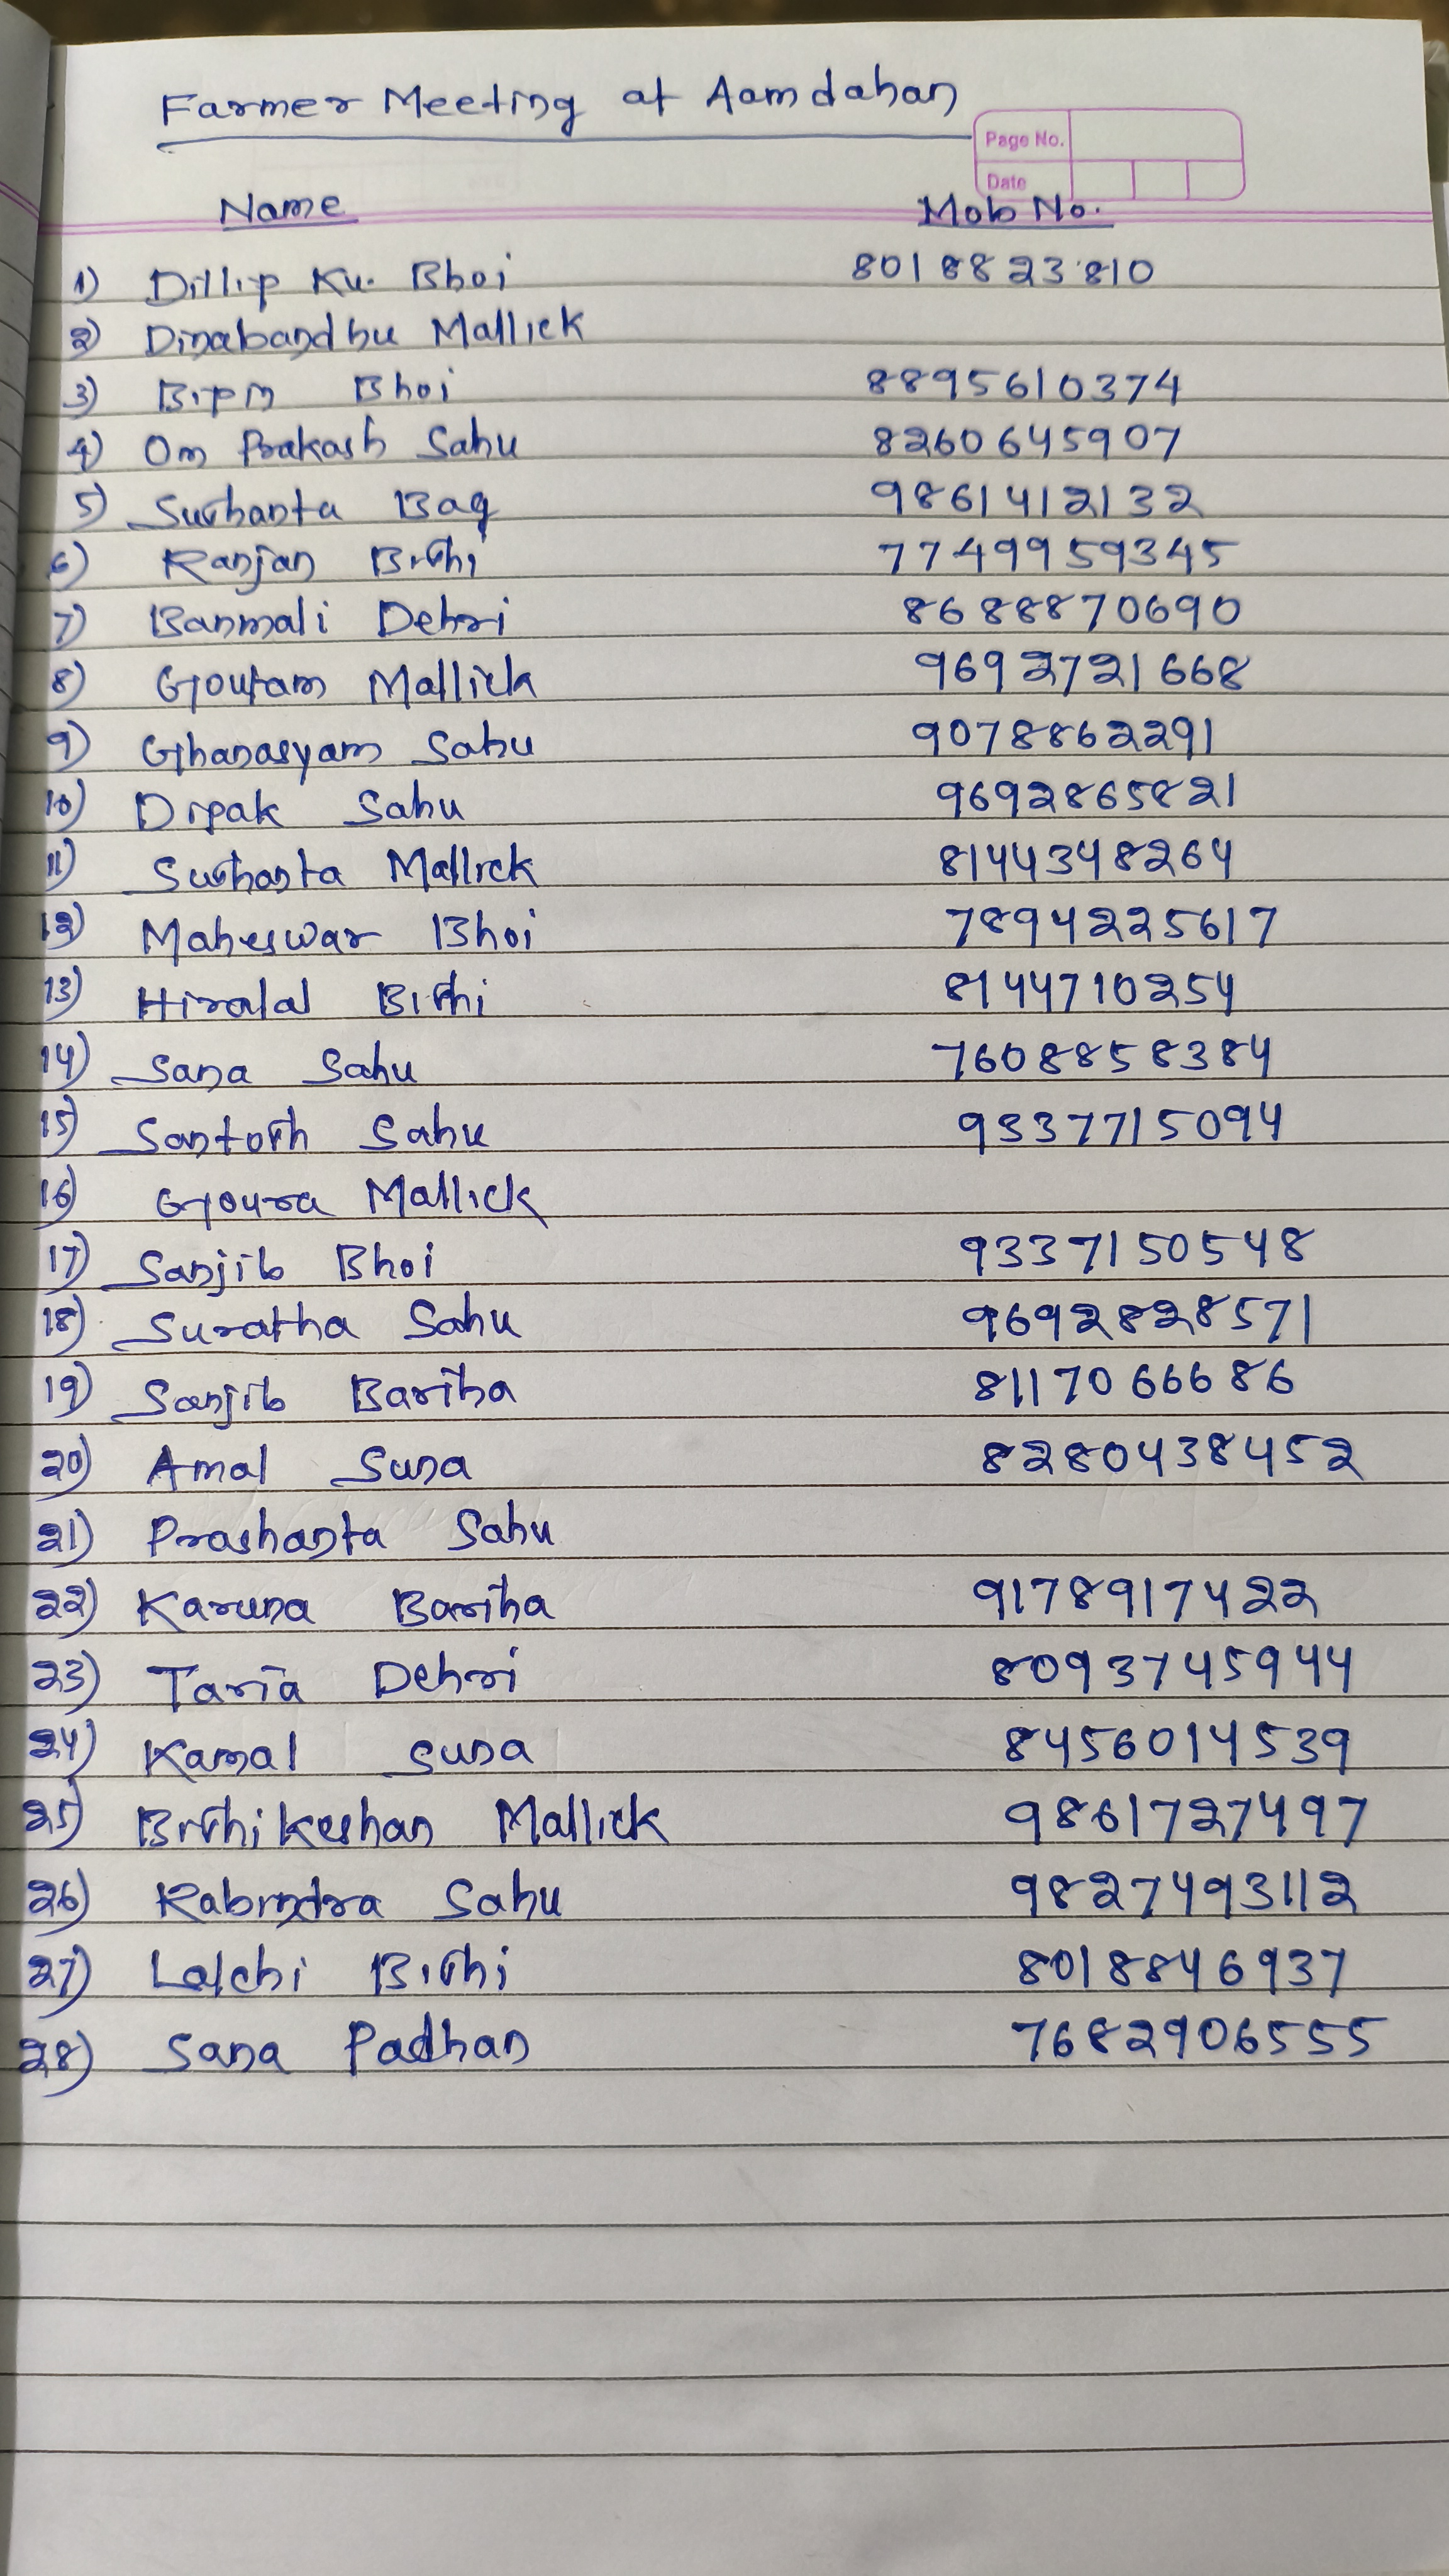 Farmer Meeting at Aamdahan
Page No.
Date
Name Mob No.
1) Dillip Ku. Bhoi 8018823810
2) Dinabandhu Mallick
3) Bipin Bhoi 8895610374
4) Om Prakash Sahu 8260645907
5) Sushanta Bag 9861412132
6) Ranjan Bishi 7749959345
7) Banmali Dehri 8688870690
8) Goutam Mallick 9692721668
9) Ghanasyam Sahu 9078862291
10) Dipak Sahu 9692865821
11) Sushanta Mallick 8144348264
12) Maheswar Bhoi 7894225617
13) Hiralal Bishi 8144710254
14) Sana Sahu 7608858384
15) Santosh Sahu 9337715094
16) Goura Mallick
17) Sanjib Bhoi 9337150548
18) Suratha Sahu 9692828571
19) Sanjib Bariha 8117066686
20) Amal Suna 8280438452
21) Prashanta Sahu
22) Karuna Bariha 9178917422
23) Taria Dehri 8093745944
24) Kamal Suna 8456014539
25) Brishikeshan Mallick 9861727497
26) Rabindra Sahu 9827493112
27) Lalchi Bishi 8018846937
28) Sana Padhan 7682906555